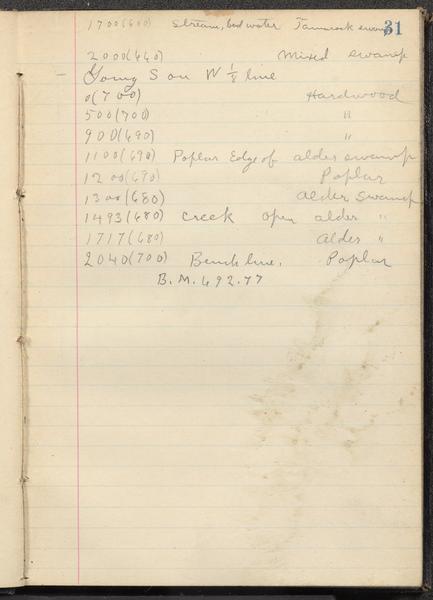 31
1700(600) Stream, bad water Tamarack swamp
2000(660) Mixed swamp
– Going S on W 1/8 line
0(700) Hardwood
500(700) "
900(690) "
1100(690) Poplar Edge of alder swamp
1200(690) Poplar
1300(680) Alder Swamp
1493(680) Creek open alder "
1717(680) Alder "
2040(700) Bench line. Poplar
B.M. 692.77